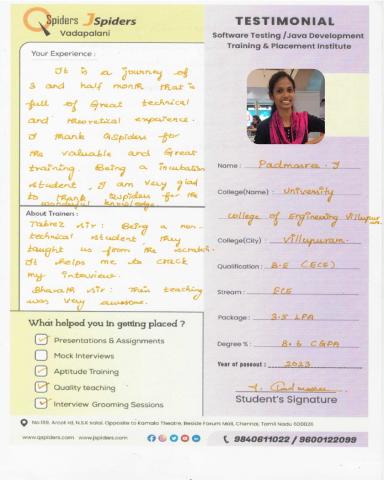 QSpiders JSpiders
Vadapalani
TESTIMONIAL
Software Testing /Java Development
Training & Placement Institute
Your Experience :
It is a journey of
3 and half month. that is
full of Great technical
and theoretical experience.
I thank QSpiders for
the valuable and Great
training. Being a
student, I am very glad
to thank QSpiders for the
wonderful knowledge.
About Trainers :
Tabrez sir: Being a non-
technical student, they
taught us from the scratch.
It helps me to crack
my interview.
Bharath sir: Their teaching
was very awesome.
What helped you in getting placed ?
Presentations & Assignments
Mock Interviews
Aptitude Training
Quality teaching
Interview Grooming Sessions
Name : Padmasree. J
College(Name) : University
college of Engineering Villupuram.
College(City) : Villupuram.
Qualification : B.E (ECE)
Stream : ECE
Package : 3.5 LPA
Degree % : 8.6 CGPA
Year of passout : 2023
J. Padmasree
Student's Signature
No.189, Arcot rd, N.S.K salai, Opposite to Kamala Theatre, Beside Forum Mall, Chennai, Tamil Nadu 600026
www.qspiders.com www.jspiders.com
9840611022 / 9600122099